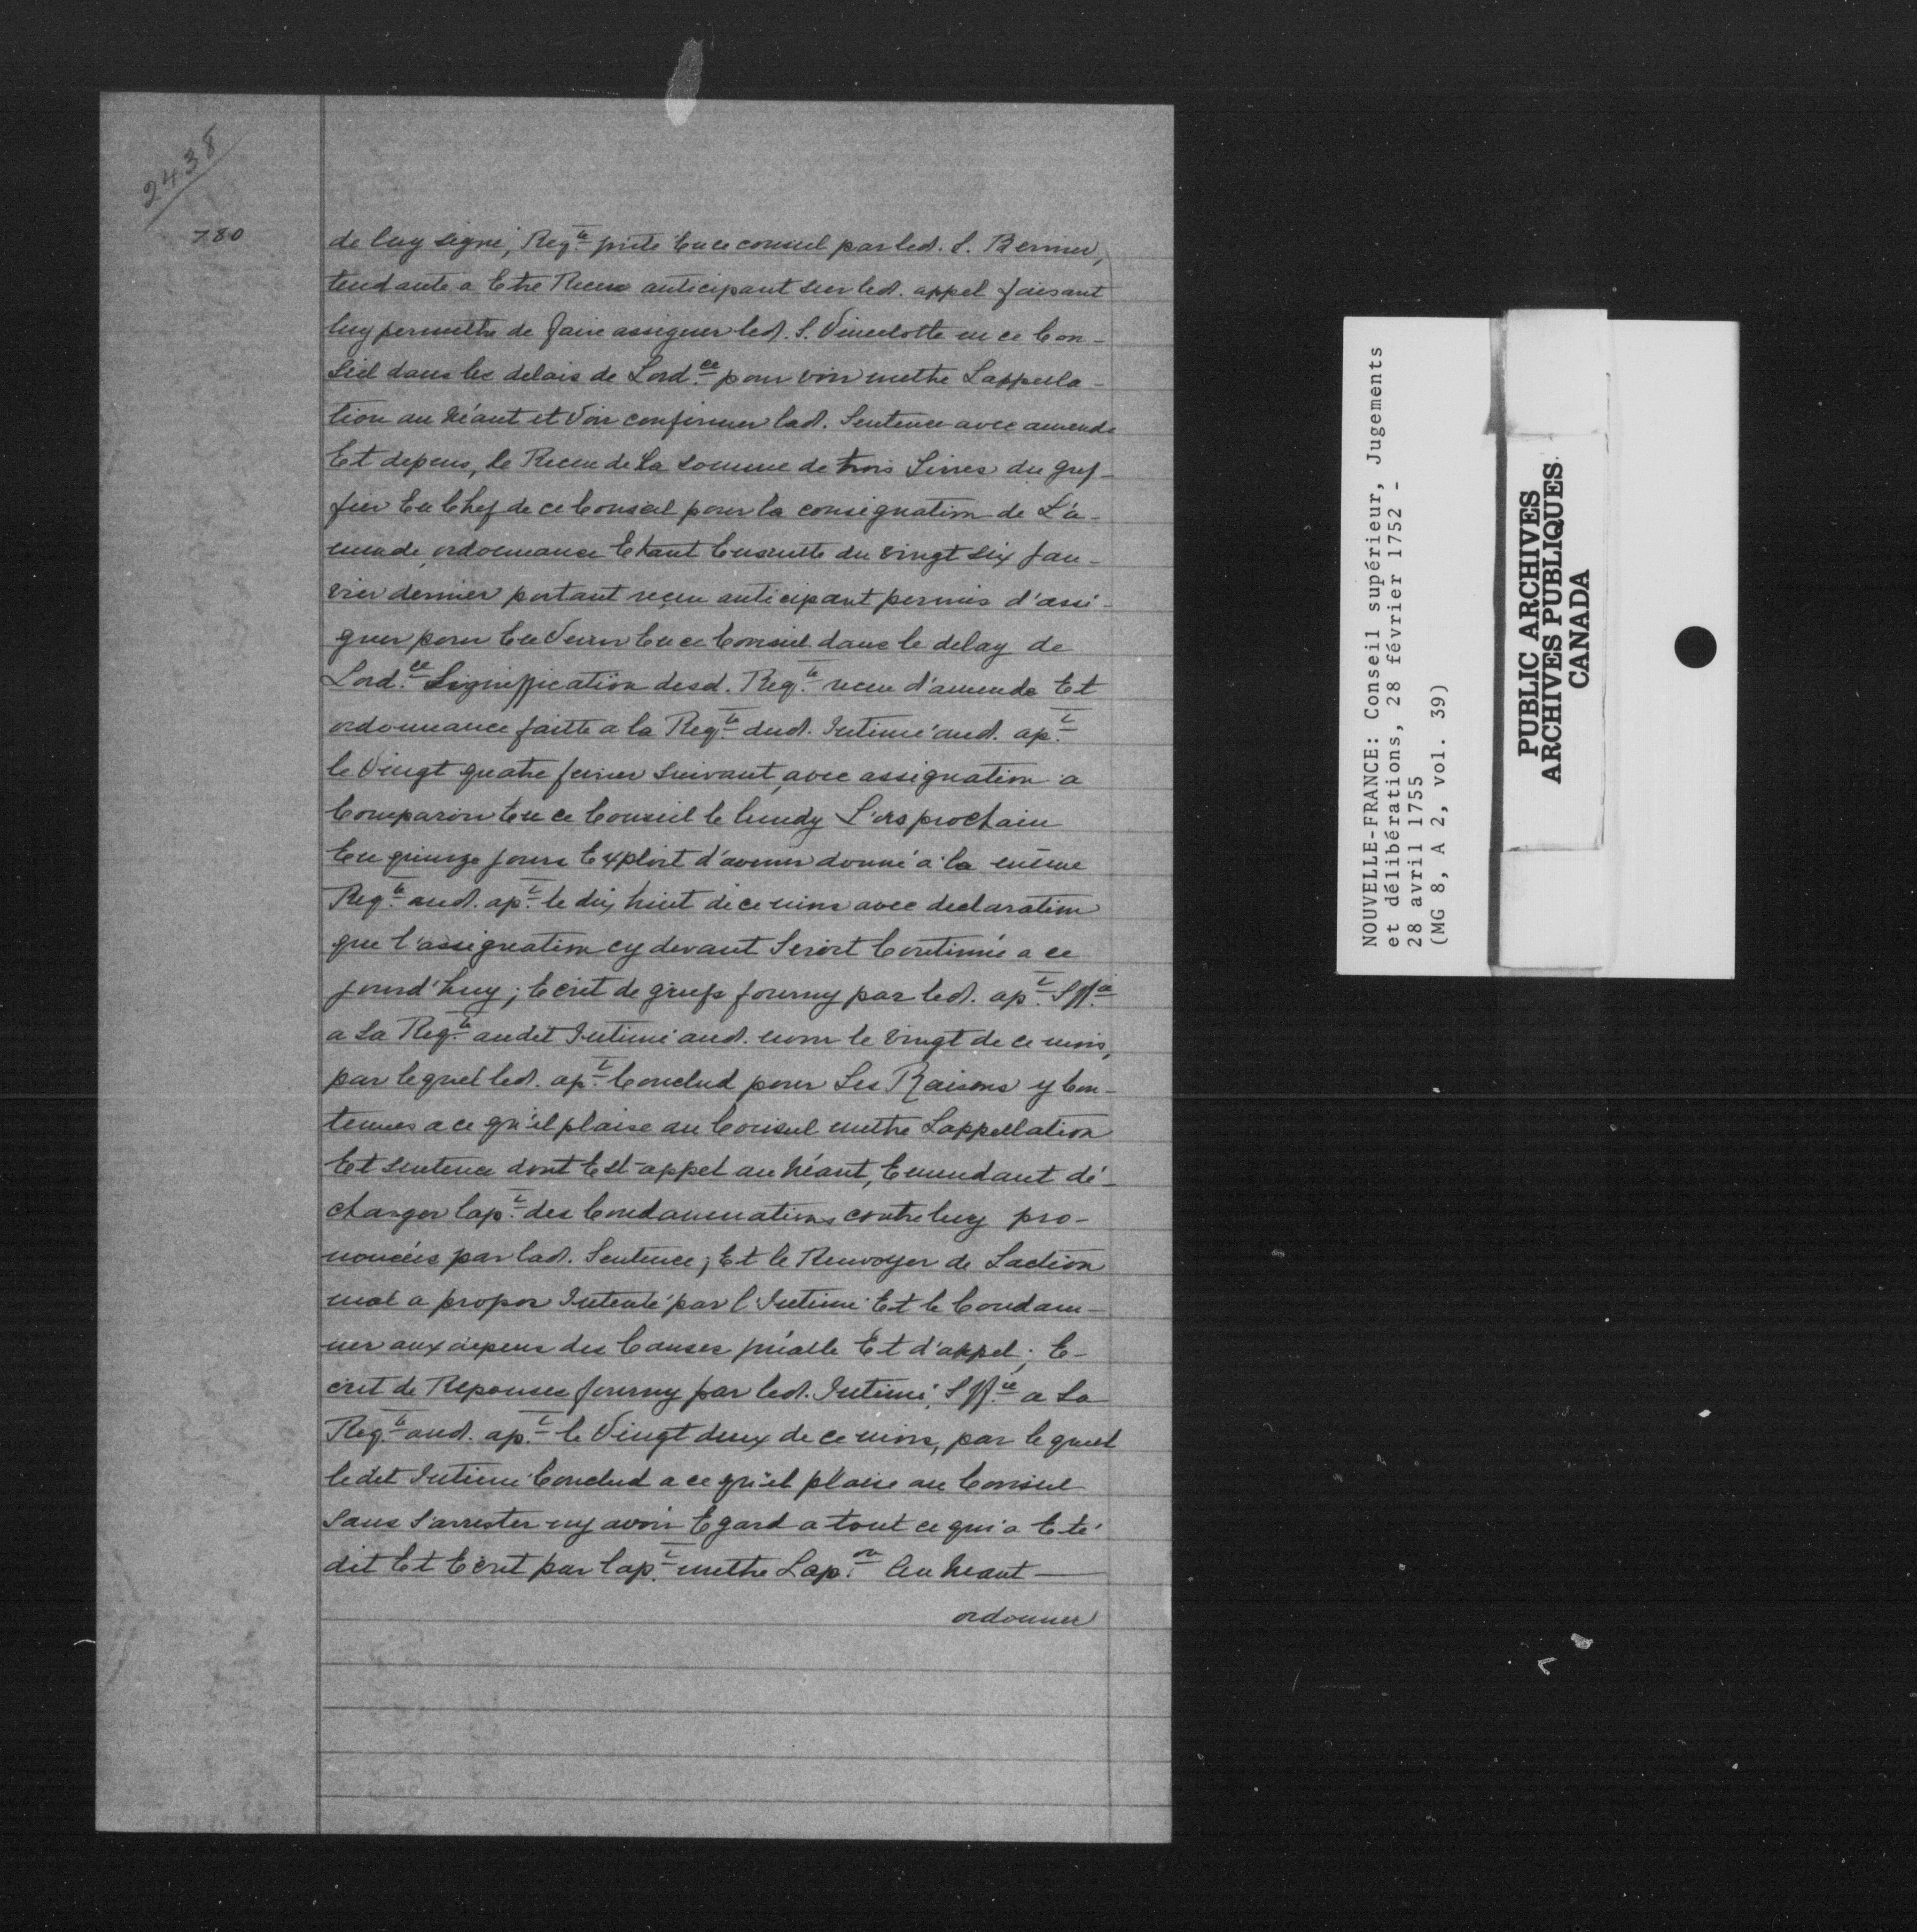 2438
780
de luy signé, Reqte prte Ence conseil par led. S. Bernier,
tendante a Etre Receu anticipant sur led. appel faisant
luy permettre de faire assigner led. S. Vincelotte en ce Con-
seil dans les delais de Lordce pour voir mettre Lappella-
tion au néant et Voir confirmer lad. Sentence avec amende
Et depens, le Receu de La somme de trois Livres du gref-
fier En Chef de ce Conseil pour la consignation de L'a-
mende, ordonnance Etant Ensuitte du vingt six Jan-
vier dernier portant reçeu anticipant permis d'assi-
gner pour En Venir En ce Conseil dans le delay de
Lordce Signiffication desd. Reqte receu d'amende Et
ordonnance faitte a la Reqte dud. Intimé aud. apt
le Vingt quatre fevrier suivant, avec assignation a
Comparoir En ce Conseil le lundy L'ors prochain
En quinze jours Exploit d'avenir donné a la même
Reqte aud. apt le dix huit de ce mois avec declaration
que l'assignation cy devant Seroit Continuée a ce
jourd'huy; Ecrit de griefs fourny par led. apt Siffié
a La Reqte audit Intimé aud. nom le vingt de ce mois,
par lequel led. apt Conclud pour Les Raisons y Con-
tenues a ce qu'il plaise au Conseil mettre Lappellation
Et sentence dont Est appel au Néant, Emendant dé-
charger lapt des Condamnations contre luy pro-
noncées par lad. Sentence; Et le Renvoyer de Laction
mal a propos Intenté par l'Intimé Et le Condam-
ner aux depens des Causes pnãlle Et d'appel; E-
crit de Reponses fourny par led. Intimé, Siffié a La
Reqte aud. apt le Vingt deux de ce mois, par lequel
ledit Intimé Conclud a ce qu'il plaise au Conseil
Sans S'arrester ny avoir Egard a tout ce qui a Eté
dit Et Ecrit par lapt mettre Lapon Au neant
ordonner
NOUVELLE-FRANCE: Conseil supérieur, Jugements
et délibérations, 28 février 1752 -
28 avril 1755
(MG 8, A 2, vol. 39)
PUBLIC ARCHIVES
ARCHIVES PUBLIQUES
CANADA